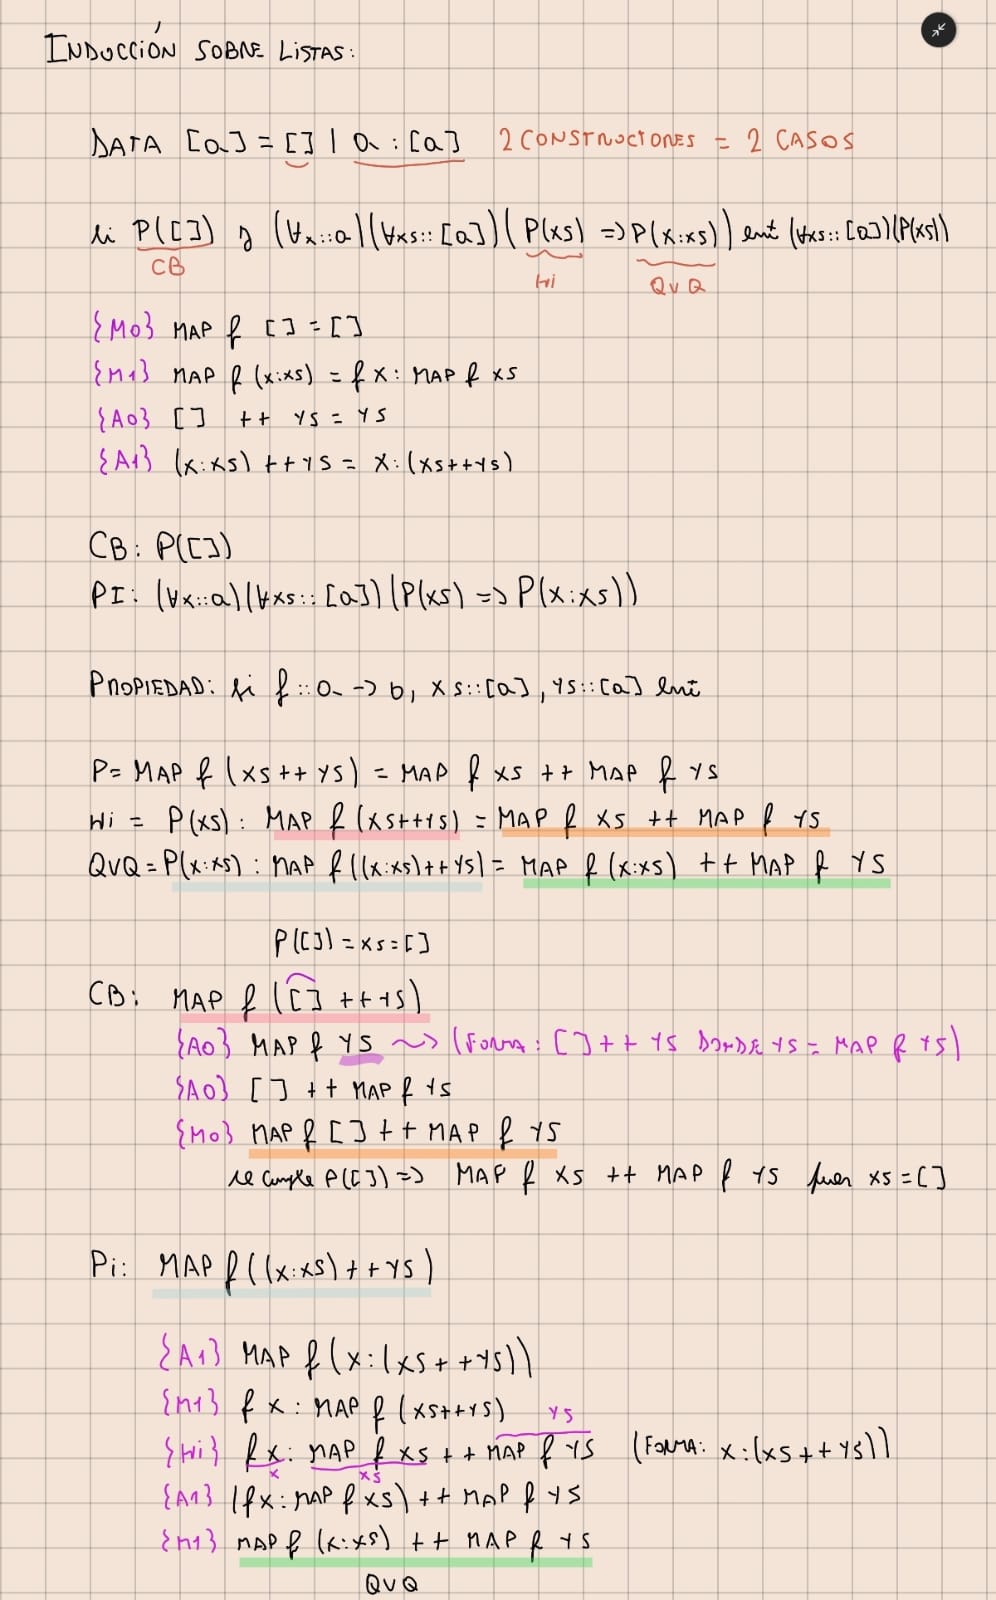 INDUCCIÓN SOBRE LISTAS:
DATA [a] = [] | a : [a] 2 CONSTRUCTORES = 2 CASOS
si P([]) y (∀x::a)(∀xs::[a])(P(xs) => P(x:xs)) ent (∀xs::[a])(P(xs))
CB Hi QVQ
{M0} MAP f [] = []
{M1} MAP f (x:xs) = f x : MAP f xs
{A0} [] ++ ys = ys
{A1} (x:xs) ++ ys = x:(xs++ys)
CB: P([])
PI: (∀x::a)(∀xs::[a])(P(xs) => P(x:xs))
PROPIEDAD: si f::a -> b, xs::[a], ys::[a] ent
P= MAP f (xs++ys) = MAP f xs ++ MAP f ys
Hi = P(xs): MAP f (xs++ys) = MAP f xs ++ MAP f ys
QVQ = P(x:xs): MAP f((x:xs)++ys) = MAP f (x:xs) ++ MAP f ys
P([]) = xs=[]
CB: MAP f ([] ++ys)
{A0} MAP f ys ~> (FORMA: []++ ys DONDE ys = MAP f ys)
{A0} [] ++ MAP f ys
{M0} MAP f [] ++ MAP f ys
se cumple P([]) => MAP f xs ++ MAP f ys xs=[]
Pi: MAP f((x:xs)++ys)
{A1} MAP f(x:(xs++ys))
{M1} f x : MAP f (xs++ys) ys
{Hi} f x: MAP f xs ++ MAP f ys (FORMA: x:(xs++ys))
x xs
{A1} (fx:MAP f xs) ++ MAP f ys
{M1} MAP f (x:xs) ++ MAP f ys
QVQ